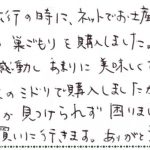 行の時に、ネットでお土産
巣ごもりを購入しました。
感動しあまりに美味しくて
のミドリで購入しましたが
が見つけられず困りまし
買いに行きます。ありがと